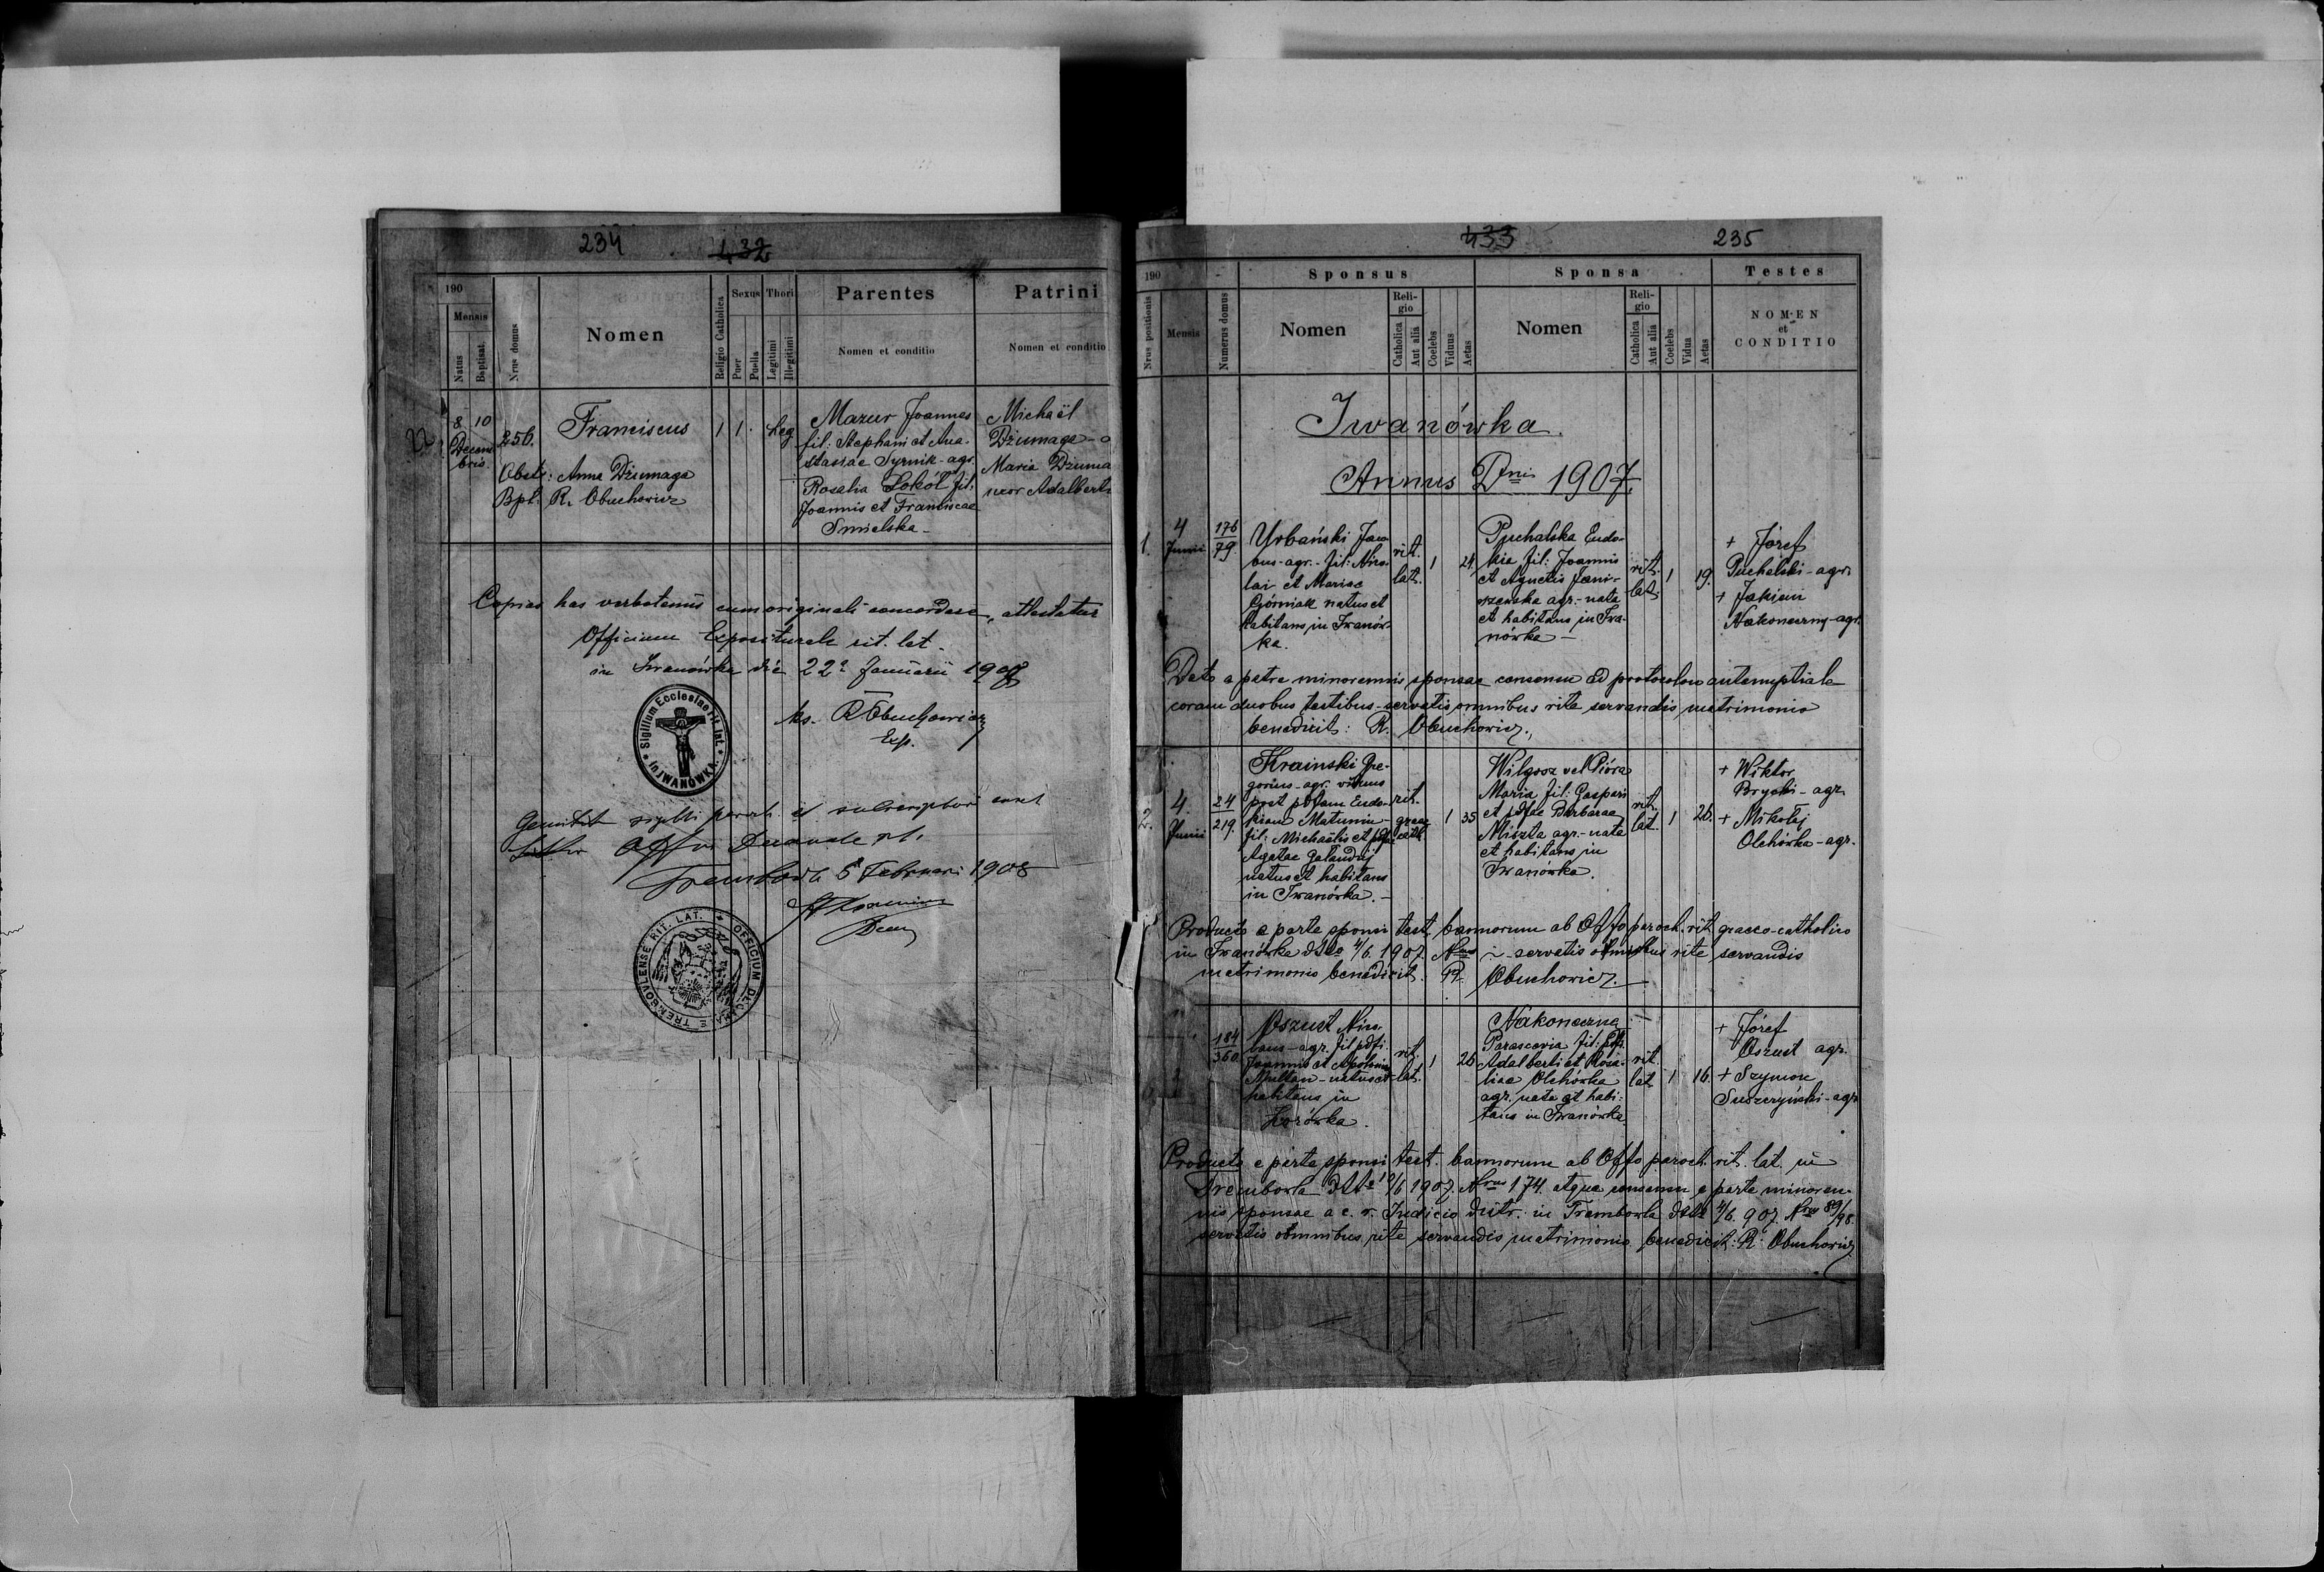 234
432
190
Mensis
Natus
Baptisat.
Nrus domus
Nomen
Religio Catholica
Sexus
Puer
Puella
Thori
Legitimi
Illegitimi
Parentes
Nomen et conditio
Patrini
Nomen et conditio
22
8 10
Decem
bris
256.
Franciscus
1
1.
Leg
Mazur Joannes
fil: Stephani et Ana-
stasiae Syrnik - agr.
Rosalia Sokół fil.
Joannis et Franciscae
Smielska -
Michaël
Dziumaga - a
Maria Dziuma
uxor Adalberti
Obste: Anna Dziumaga
Bpt. R. Obuchowicz
Copias has verbotenus cum originali concordare, attestatur
Officium Expositurale rit. lat.
in Iwanówka die 22ª Januarii 1908
ks. R Obuchowicz
Exp.
Sigillum Ecclesiae rit. lat.
in IWANÓWKA
sigilli paroch. et
Offm Decanale r. l.
Trembowla 5 Februarii 1908
OFFICIUM DECANALE TREMBOVLENSE RIT. LAT.
433
235
190
Nrus positionis
Mensis
Numerus domus
Sponsus
Nomen
Reli-
gio
Catholica
Aut alia
Coelebs
Viduus
Aetas
Sponsa
Nomen
Reli-
gio
Catholica
Aut alia
Coelebs
Vidua
Aetas
Testes
NOMEN
et
CONDITIO
Iwanówka.
Annus Dni 1907.
1.
4
Junii
176
79.
Urbański Jaco-
bus - agr. - fil: Nico-
lai et Mariae
Górniak natus et
habitans in Iwanów-
ka.
rit.
lat.
1
24
Puchalska Eudo-
kia fil: Joannis
et Agnetis Jani-
szewska agr. - nata
et habitans in Iwa-
nówka -
rit.
lat.
1
19.
+ Józef
Puchalski - agr.
+ Jakim
Nakoneczny - agr.
Dato a patre minorennis sponsae consensu ad protocolon antenuptiale
coram duobus testibus - servatis omnibus rite servandis, matrimonio
benedixit: R. Obuchowicz.
2.
4.
Junii
24
219.
Krainski Gre-
gorius - agr. viduus
post pdfam Eudo-
kiam Matunin -
fil: Michaëlis et pdfae
Agatae Gałanduj
natus et habitans
in Iwanówka. -
rit.
graec
cath
1
35
Wilgosz vel Pióro
Maria fil: Gaspari
et pdfae Barbarae
Miszta agr. - nata
et habitans in
Iwanówka.
rit.
lat.
1
26.
+ Wiktor
Brycki - agr.
+ Mikołaj
Olchówka - agr.
Producto e parte sponsi test. bannorum ab Offo paroch. rit. graeco-catholico
in Iwanówka ddto 4/6. 1907. Nro - servatis omnibus rite servandis
matrimonio benedixit. R. Obuchowicz.
184
360.
Oszust Nico-
laus - agr. fil pdfi
Joannis et Apoloniae
Multan - natus et
habitans in
rit.
lat.
1
26
Nakoneczna
Parascevia fil: pdfi
Adalberti et Rosa-
liae Olchówka
agr. nata et habi-
tans in Iwanówka
rit.
lat
1
16.
+ Józef
Oszust agr.
+ Szymon
Suszczyński - agr
Producto e parte sponsi test. bannorum ab Offo paroch. rit. lat. in
Trembowla ddto 1907. Nrus 174. atque consensu e parte minoren-
nis sponsae a c. r. Iudicio distr. in Trembowla ddto 4/6. 907. Nrus 89/98.
servatis omnibus rite servandis matrimonio benedixit: R. Obuchowicz